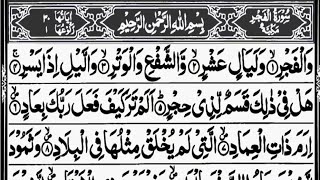 سُوْرَةُ الْفَجْرِ مَكِّيَّةٌ بِسْمِ اللهِ الرَّحْمٰنِ الرَّحِيْمِ اٰيَاتُهَا ٣٠ رُكُوْعُهَا ١
وَالْفَجْرِ ۙ﴿١﴾ وَلَيَالٍ عَشْرٍ ۙ﴿٢﴾ وَّالشَّفْعِ وَالْوَتْرِ ۙ﴿٣﴾ وَالَّيْلِ اِذَا يَسْرِ ۚ﴿٤﴾
هَلْ فِيْ ذٰلِكَ قَسَمٌ لِّذِيْ حِجْرٍ ؕ﴿٥﴾ اَلَمْ تَرَ كَيْفَ فَعَلَ رَبُّكَ بِعَادٍ ۙ﴿٦﴾
اِرَمَ ذَاتِ الْعِمَادِ ۙ﴿٧﴾ الَّتِيْ لَمْ يُخْلَقْ مِثْلُهَا فِي الْبِلَادِ ۙ﴿٨﴾ وَثَمُوْدَ